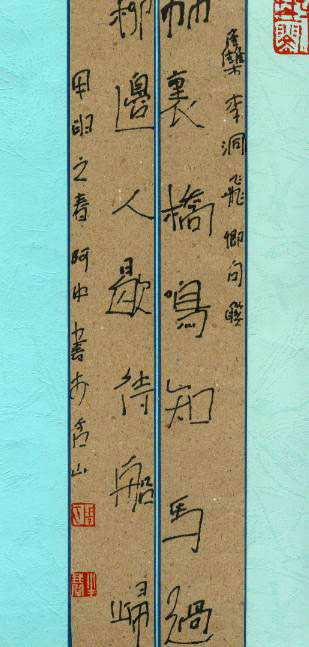 集李洞飛卿句聯
竹裏橋鳴知馬過
柳邊人歇待船歸
之春阿中書於山